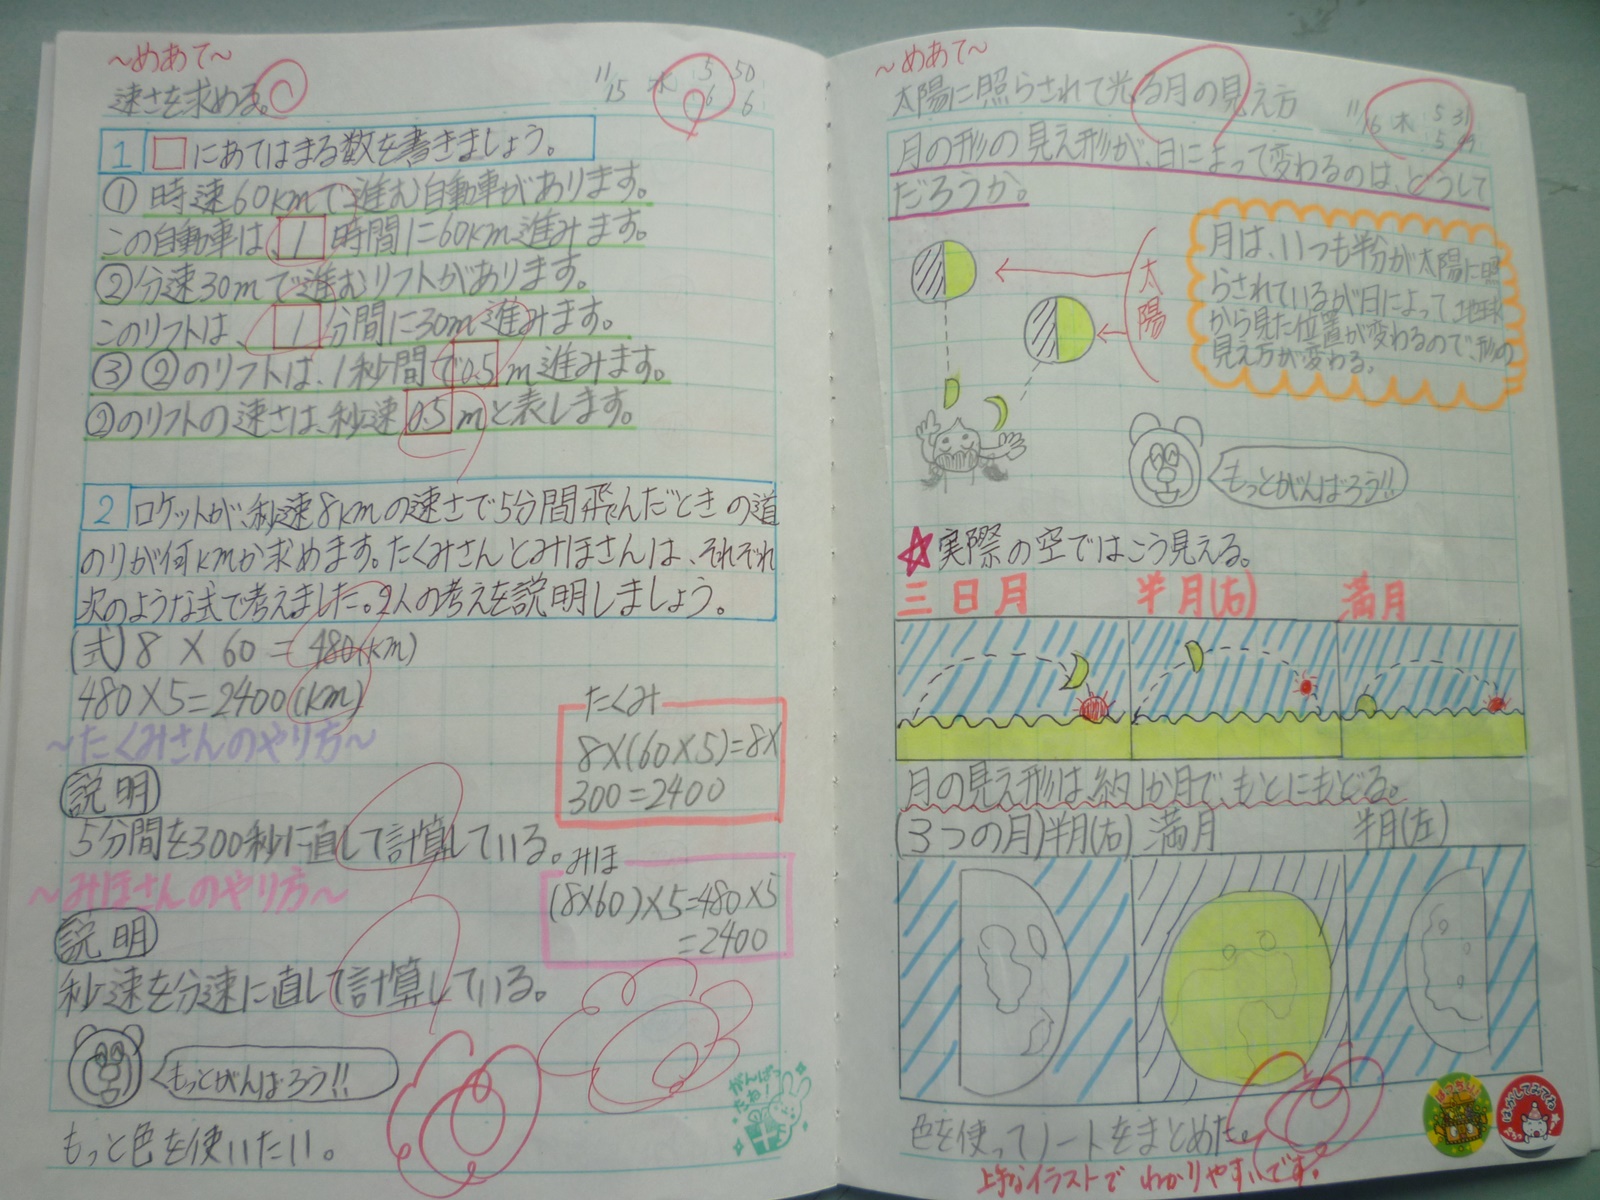 ~めあて~
速さを求める。
11/15 木 5 50
6 6
1 □にあてはまる数を書きましょう。
① 時速60kmで進む自動車があります。
この自動車は 1 時間に60km進みます。
②分速30mで進むリフトがあります。
このリフトは、1 分間に30m進みます。
③ ②のリフトは、1秒間で0.5m進みます。
②のリフトの速さは、秒速0.5mと表します。
2 ロケットが、秒速8kmの速さで5分間飛んだときの道
のりが何kmか求めます。たくみさんとみほさんは、それぞれ
次のような式で考えました。2人の考えを説明しましょう。
(式) 8 × 60 = 480(km)
480×5=2400(km)
~たくみさんのやり方~
説明
5分間を300秒に直して計算している。
たくみ
8×(60×5)=8×
300=2400
~みほさんのやり方~
説明
秒速を分速に直して計算している。
みほ
(8×60)×5=480×5
=2400
もっとがんばろう!!
がんばっ
たね!
もっと色を使いたい。
~めあて~
太陽に照らされて光る月の見え方
木 5 31
月の形の見え形が、日によって変わるのは、どうして
だろうか。
太陽
月は、いつも半分が太陽に照
らされているが日によって地球
から見た位置が変わるので、形の
見え方が変わる。
もっとがんばろう!!
☆実際の空ではこう見える。
三日月 半月(右) 満月
月の見え形は、約1か月で、もとにもどる。
(3つの月)半月(右) 満月 半月(左)
色を使ってノートをまとめた。
上手なイラストで わかりやすいです。
はがしてみてね